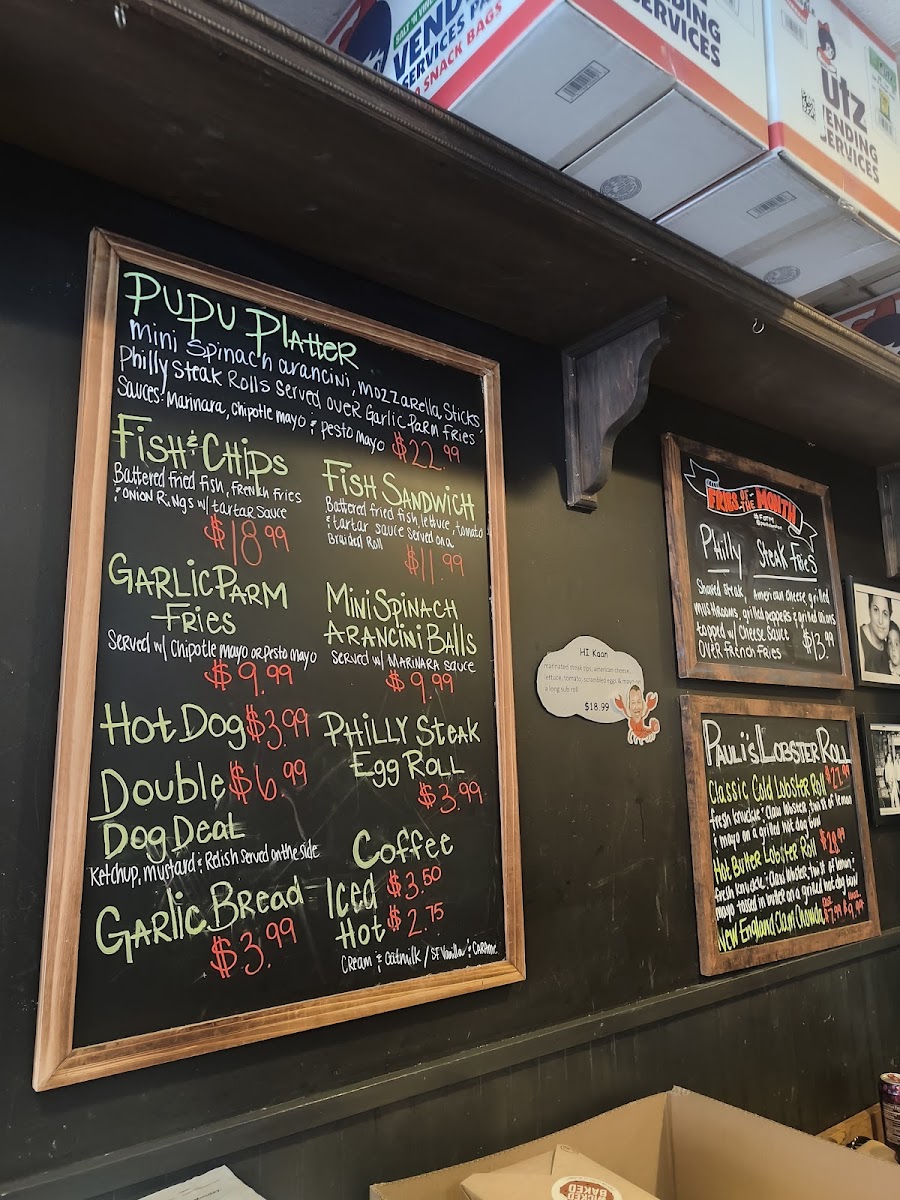 SALT 'N VINE
VENDI
SERVICES PA
SNACK BAGS
SERVICES
Utz
VENDING
SERVICES
PUPU PLATTER
mini Spinach arancini, mozzarella sticks,
Philly steak Rolls served over Garlic Parm Fries
Sauces: Marinara, Chipotle mayo & pesto mayo $22.99
FISH & CHIPS
Battered fried fish, french fries
& onion rings w/ tartar sauce
$18.99
FISH SANDWICH
Battered fried fish, lettuce, tomato
& tartar sauce served on a
Braided Roll
$11.99
GARLIC PARM
FRIES
Served w/ Chipotle mayo or Pesto mayo
$9.99
MINI SPINACH
ARANCINI BALLS
served w/ MARINARA sauce
$9.99
HOT DOG $3.99
DOUBLE $6.99
DOG DEAL
Ketchup, mustard & Relish served on the side
PHILLY STEAK
EGG ROLL
$3.99
GARLIC BREAD
$3.99
COFFEE
Iced $3.50
Hot $2.75
Cream & Oatmilk / SF Vanilla &
HI Kaan
marinated steak tips, american cheese,
lettuce, tomato, scrambled eggs & mayo on
a long sub roll
$18.99
FRIES
OF THE
MONTH
Philly Steak Fries
Shaved Steak, American cheese, grilled
mushrooms, grilled peppers & grilled onions
topped w/ Cheese Sauce
OVER FRENCH FRIES $13.99
PAULI'S LOBSTER ROLL
Classic Cold Lobster Roll
fresh knuckle & claw lobster, twist of lemon
& mayo on a grilled hot dog bun
Hot Butter Lobster Roll $28.99
fresh knuckle & claw lobster, twist of lemon &
mayo tossed in butter on a grilled hot dog bun
New England Clam Chowda $7.99 $9.99
BAKED